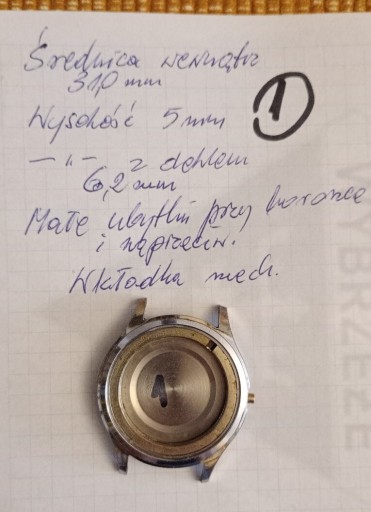 Średnica wewnątrz
31,0 mm
Wysokość 5 mm
1
— " — z deklem
6,2 mm
Małe ubytki przy koronce
i naprzeciw.
Wkładka mech.
1
WYBRZEŻE